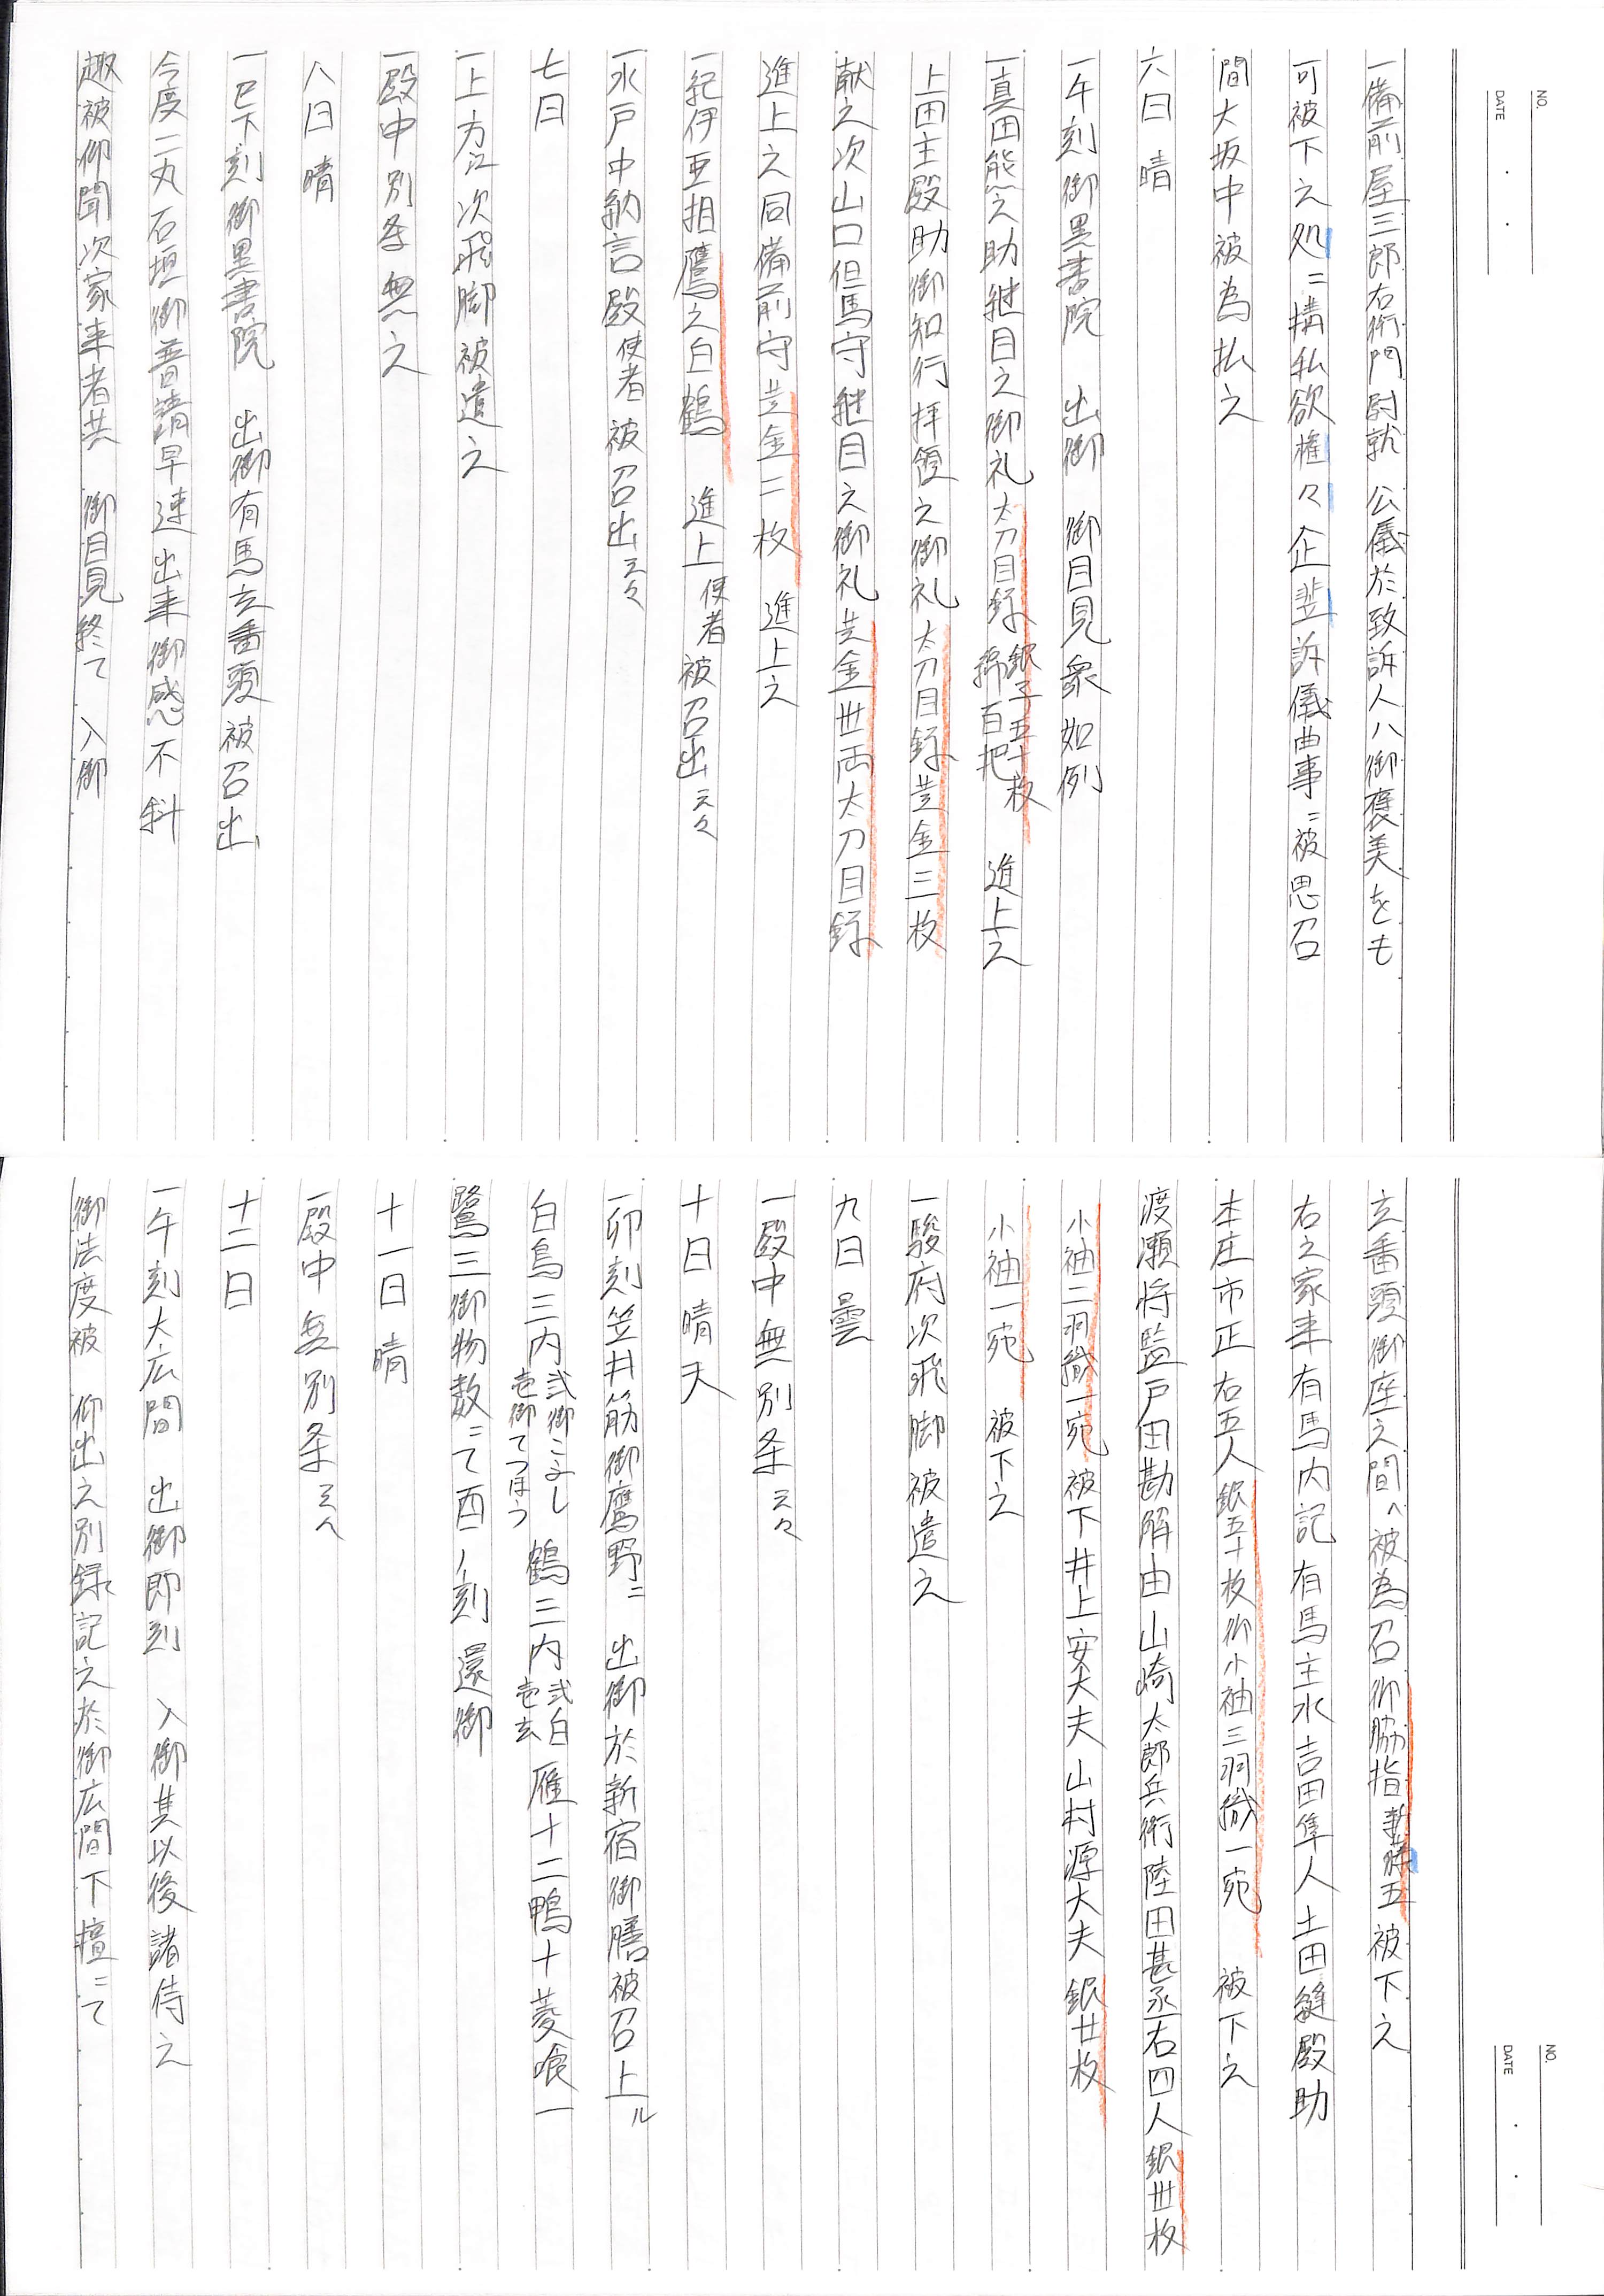 NO.
DATE
一備前屋三郎右衛門尉就 公儀於致訴人ハ御褒美をも
可被下之処ニ構私欲権々企 訴儀曲事ニ被思召
間大坂中被為払之
六日 晴
一午刻御黒書院 出御 御目見衆如例
一真田熊之助継目之御礼太刀目録銀子五十枚綿百把 進上之
上田主殿助御知行拝領之御礼太刀目録黄金三枚
献之次山口但馬守継目之御礼黄金卅両太刀目録
進上之同備前守黄金二枚 進上之
一紀伊亜相鷹之白鶴 進上使者被召出云々
一水戸中納言殿使者被召出云々
七日
一上方江次飛脚被遣之
一殿中別条無之
八日 晴
一巳下刻御黒書院 出御有馬玄番頭被召出
今度二丸石垣御普請早速出来御感不斜
趣被仰聞次家来者共 御目見終て 入御
NO.
DATE
玄番頭御座之間へ被為召御脇指 五被下之
右之家来有馬内記有馬主水吉田隼人土田縫殿助
本庄市正右五人銀五十枚御小袖三羽織一宛 被下之
渡瀬将監戸田勘解由山崎太郎兵衛陸田甚丞右四人銀卅枚
小袖二羽織一宛被下井上安大夫山村源大夫銀廿枚
小袖一宛 被下之
一駿府次飛脚被遣之
九日 曇
一殿中無別条云々
十日 晴天
一卯刻笠井筋御鷹野ニ 出御於新宿御膳被召上ル
白鳥三内弐御こふし壱御てつほう 鶴三内弐白壱玄 雁十二鴨十菱喰一
鷺三御物数ニて酉ノ刻 還御
十一日 晴
一殿中無別条云々
十二日
一午刻大広間 出御即刻 入御其以後諸侍之
御法度被 仰出之別録記之於御広間下壇ニて